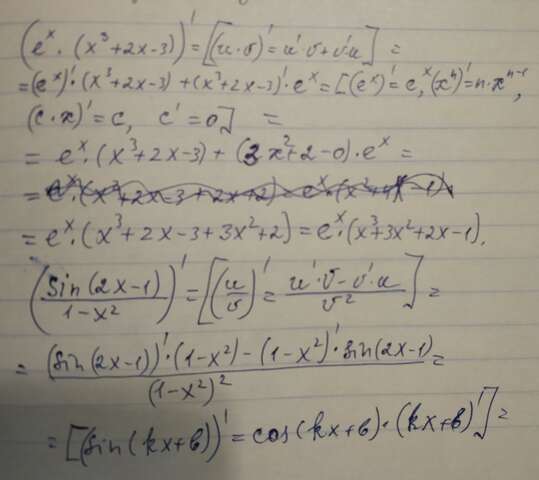 (eˣ · (x³+2x-3))' = [(u·v)' = u'·v+v'·u] =
= (eˣ)'·(x³+2x-3) + (x³+2x-3)'·eˣ = [(eˣ)' = eˣ, (xⁿ)' = n·xⁿ⁻¹,
(c·x)' = c, c' = 0] =
= eˣ·(x³+2x-3) + (3x²+2-0)·eˣ =
= eˣ·(x³+2x-3+3x²+2) = eˣ·(x³+3x²+2x-1).
(sin(2x-1)/(1-x²))' = [(u/v)' = (u'·v-v'·u)/v²] =
= ((sin(2x-1))'·(1-x²)-(1-x²)'·sin(2x-1))/(1-x²)² =
= [(sin(kx+b))' = cos(kx+b)·(kx+b)'] =